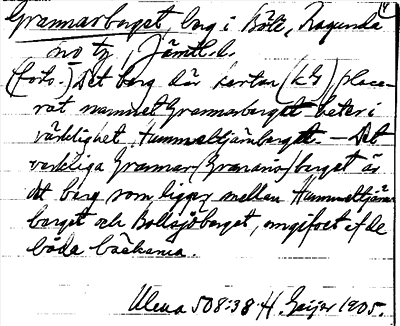 Grannarberget, berg i Böle, Ragunda
sn o tg, Jämtl. l.
(forts.) Det berg där kartan (kG) place-
rat namnet Grannarberget heter i
värklighet Hummeltjärnberget. — Det
verkliga Grannar/Granans/berget är
ett berg som ligger mellan Hummeltjärn
berget och Bollsjöberget, omgifvet af de
båda bäckarna.
Uleva 508:38 H. Geijer 1905.